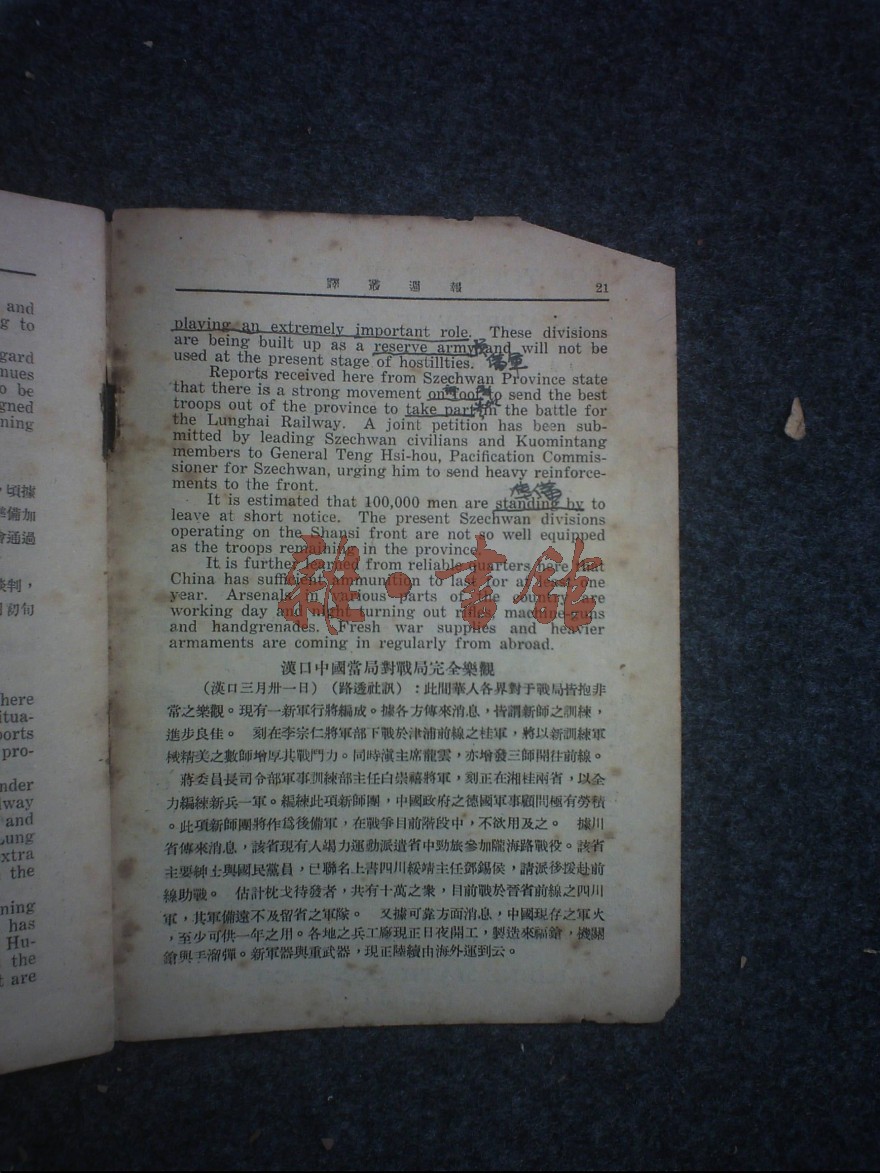 and
g to
gard
nues
o be
gned
ning
，頃據
準備加
會通過
談判，
月初旬
here
itua-
ports
pro-
nder
lway
and
Lung
extra
the
ning
has
Hu-
the
t are
譯叢週報 21
playing an extremely important role. These divisions
are being built up as a reserve army and will not be
used at the present stage of hostillties.
Reports received here from Szechwan Province state
that there is a strong movement on foot to send the best
troops out of the province to take part in the battle for
the Lunghai Railway. A joint petition has been sub-
mitted by leading Szechwan civilians and Kuomintang
members to General Teng Hsi-hou, Pacification Commis-
sioner for Szechwan, urging him to send heavy reinforce-
ments to the front.
It is estimated that 100,000 men are standing by to
leave at short notice. The present Szechwan divisions
operating on the Shansi front are not so well equipped
as the troops remaining in the province.
It is further learned from reliable quarters here that
China has sufficient ammunition to last for at least one
year. Arsenals in various parts of the country are
working day and night turning out rifles, machine-guns
and handgrenades. Fresh war supplies and heavier
armaments are coming in regularly from abroad.
漢口中國當局對戰局完全樂觀
（漢口三月卅一日）（路透社訊）：此間華人各界對于戰局皆抱非
常之樂觀。現有一新軍行將編成。據各方傳來消息，皆謂新師之訓練，
進步良佳。 刻在李宗仁將軍部下戰於津浦前線之桂軍，將以新訓練軍
械精美之數師增厚其戰鬥力。同時滇主席龍雲，亦增發三師開往前線。
蔣委員長司令部軍事訓練部主任白崇禧將軍，刻正在湘桂兩省，以全
力編練新兵一軍。編練此項新師團，中國政府之德國軍事顧問極有勞積
。此項新師團將作爲後備軍，在戰爭目前階段中，不欲用及之。 據川
省傳來消息，該省現有人竭力運動派遣省中勁旅參加隴海路戰役。該省
主要紳士與國民黨員，已聯名上書四川綏靖主任鄧錫侯，請派後援赴前
線助戰。 估計枕戈待發者，共有十萬之衆，目前戰於晉省前線之四川
軍，其軍備遠不及留省之軍隊。 又據可靠方面消息，中國現存之軍火
，至少可供一年之用。各地之兵工廠現正日夜開工，製造來福鎗，機關
鎗與手溜彈。新軍器與重武器，現正陸續由海外運到云。
雜·書館